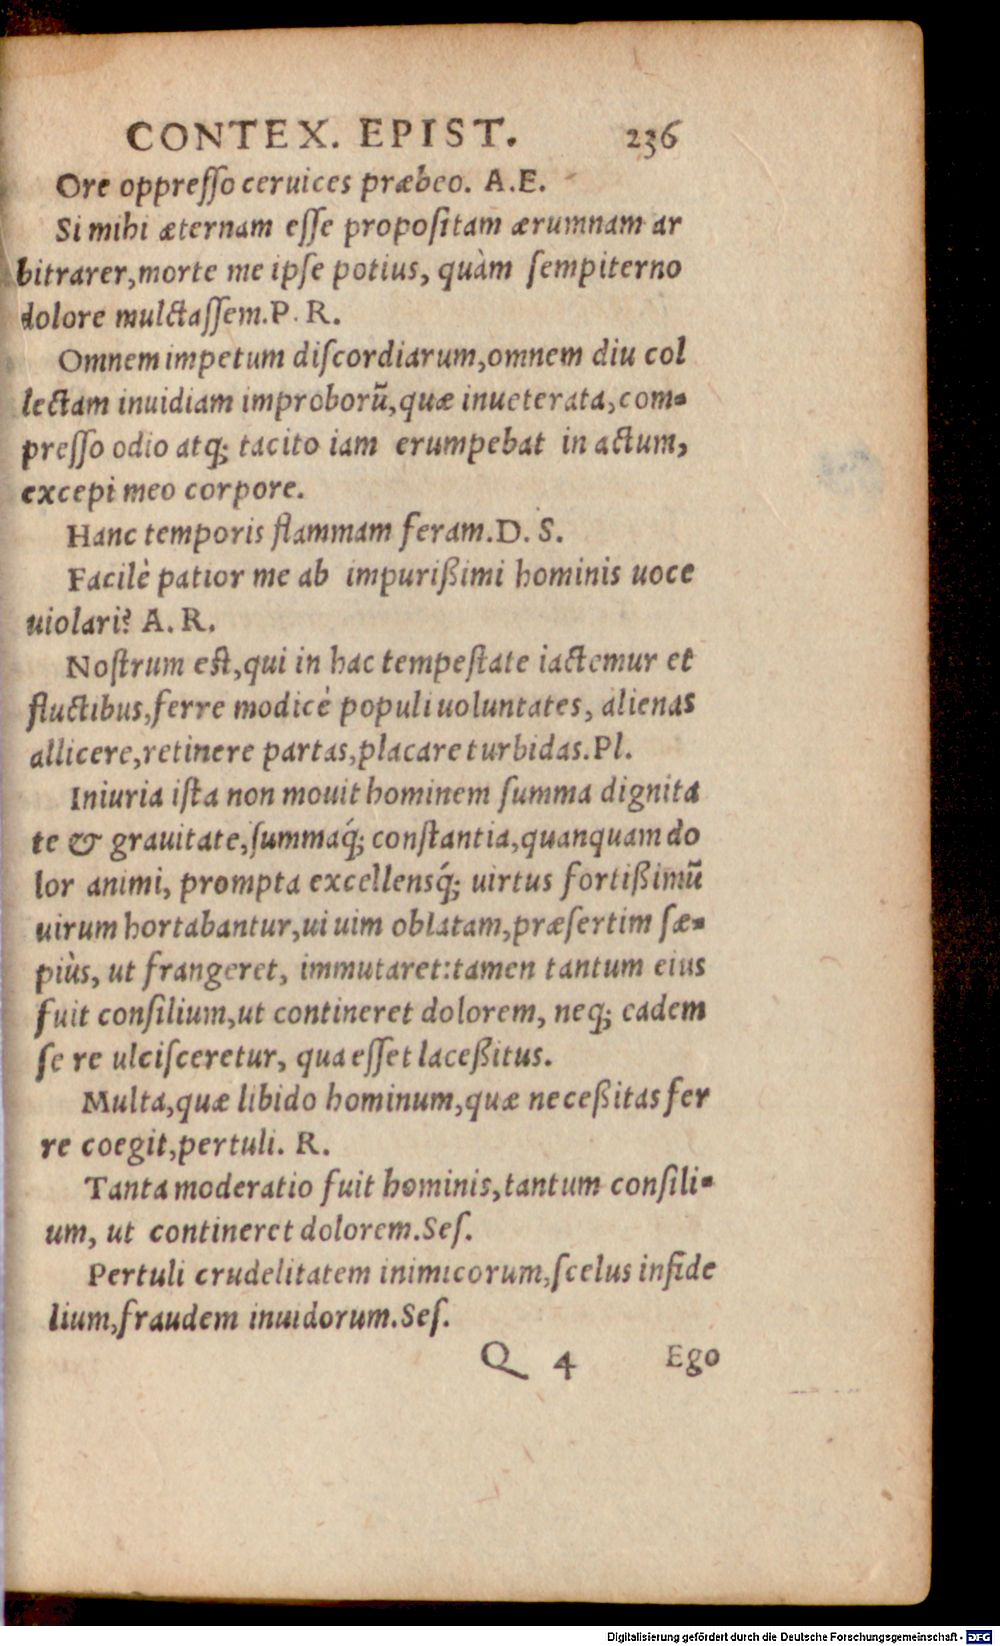 CONTEX. EPIST. 236
Ore oppreſſo ceruices præbeo. A.E.
Si mihi æternam eſſe propoſitam ærumnam ar
bitrarer,morte me ipſe potius, quàm ſempiterno
dolore mulctaſſem.P. R.
Omnem impetum diſcordiarum,omnem diu col
lectam inuidiam improborũ,quæ inueterata,com-
preſſo odio atq; tacito iam erumpebat in actum,
excepi meo corpore.
Hanc temporis flammam feram.D. S.
Facilè patior me ab impurißimi hominis uoce
uiolari? A. R.
Noſtrum eſt,qui in hac tempeſtate iactemur et
fluctibus,ferre modicè populi uoluntates, alienas
allicere,retinere partas,placare turbidas.Pl.
Iniuria iſta non mouit hominem ſumma dignita
te & grauitate,ſummaq́; conſtantia,quanquam do
lor animi, prompta excellensq́; uirtus fortißimũ
uirum hortabantur,ui uim oblatam,præſertim ſæ-
piùs, ut frangeret, immutaret:tamen tantum eius
fuit conſilium,ut contineret dolorem, neq; eadem
ſe re ulciſceretur, qua eſſet laceßitus.
Multa,quæ libido hominum,quæ neceßitas fer
re coegit,pertuli. R.
Tanta moderatio fuit hominis,tantum conſili-
um, ut contineret dolorem.Seſ.
Pertuli crudelitatem inimicorum,ſcelus infide
lium,fraudem inuidorum.Seſ.
Q 4 Ego
Digitalisierung gefördert durch die Deutsche Forschungsgemeinschaft - DFG